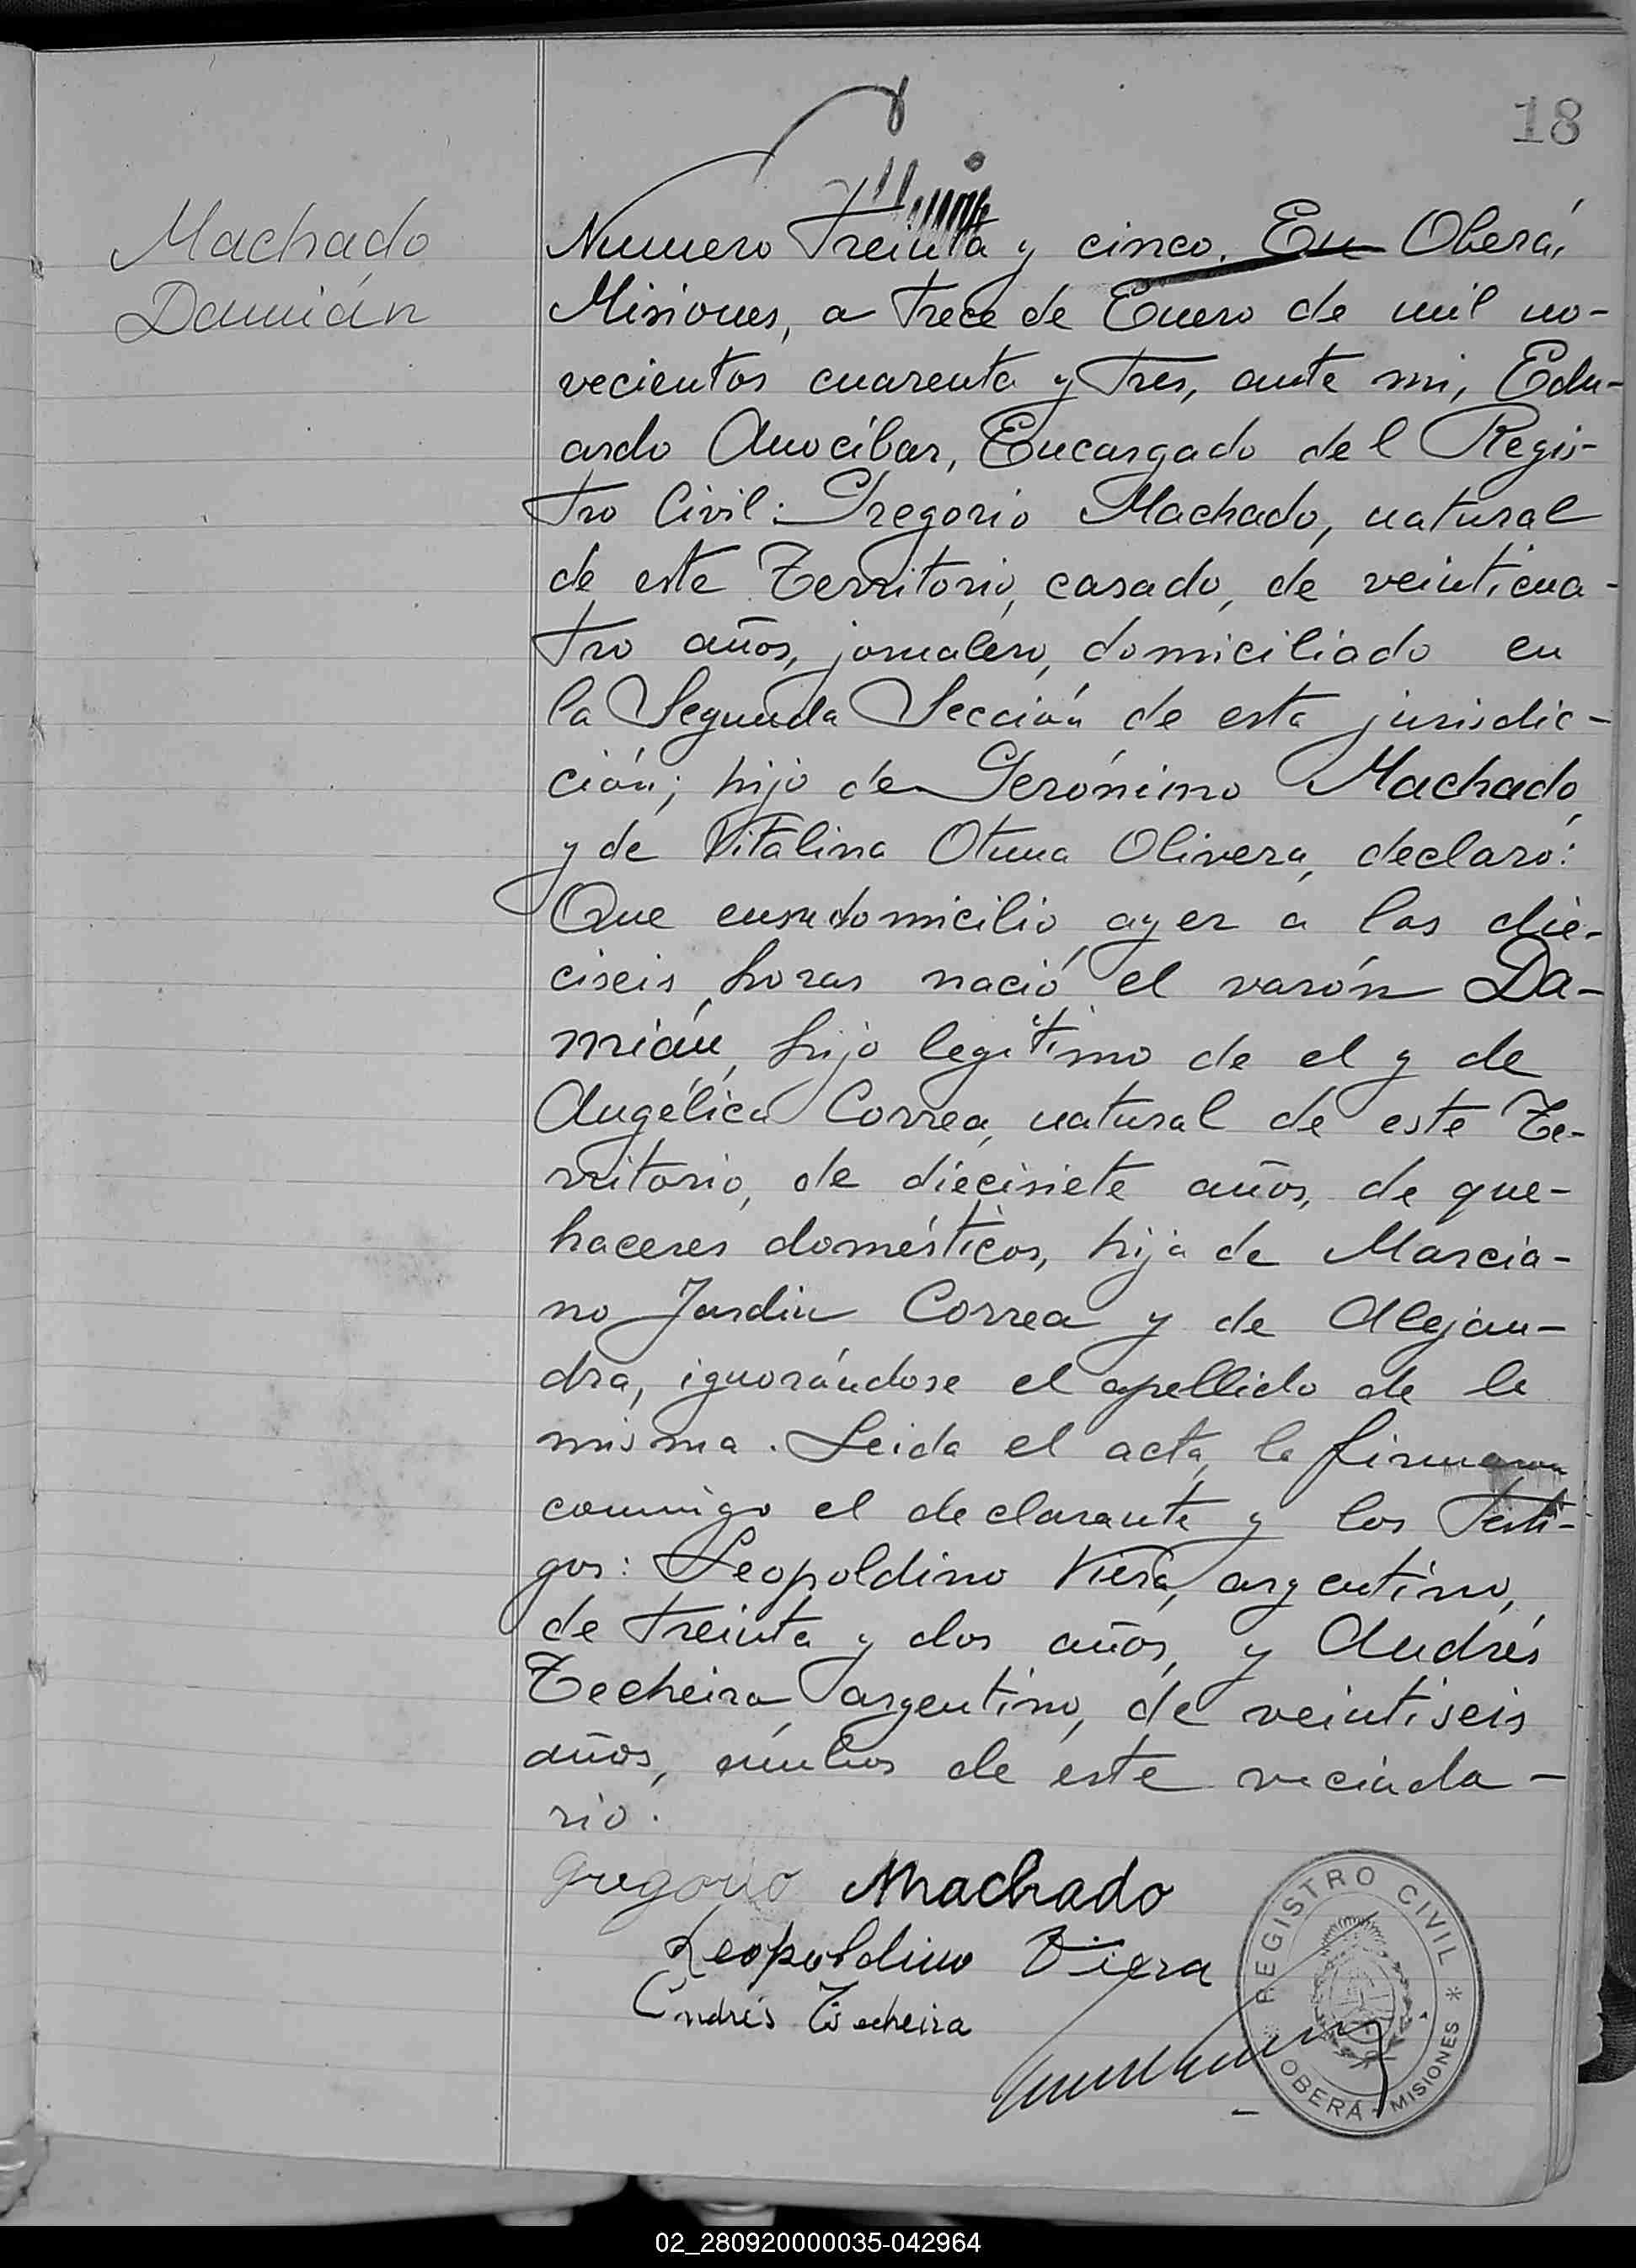 18
Machado
Damián
Numero Treinta y cinco. En Oberá,
Misiones, a trece de Enero de mil no-
vecientos cuarenta y tres, ante mi, Edu-
ardo Anocíbar, Encargado del Regis-
tro Civil: Gregorio Machado, natural
de este Territorio, casado, de veinticua-
tro años, jornalero, domiciliado en
la Segunda Sección de esta jurisdic-
ción; hijo de Gerónimo Machado
y de Vitalina Olivera, declaró:
Que en su domicilio, ayer a las die-
ciseis horas nació el varón Da-
mián, hijo legítimo de el y de
Angélica Correa, natural de este Te-
rritorio, de diecisiete años, de que-
haceres domésticos, hija de Marcia-
no Jardin Correa y de Alejan-
dra, ignorándose el apellido de la
misma. Leida el acta, la firmaron
conmigo el declarante y los Testi-
gos: Leopoldino Viera, argentino,
de treinta y dos años, y Andrés
Techeira, argentino, de veintiseis
años, ambos de este vecinda-
rio.
Gregorio Machado
Leopoldino Viera
Andrés Techeira
REGISTRO CIVIL
OBERÁ - MISIONES
02_280920000035-042964